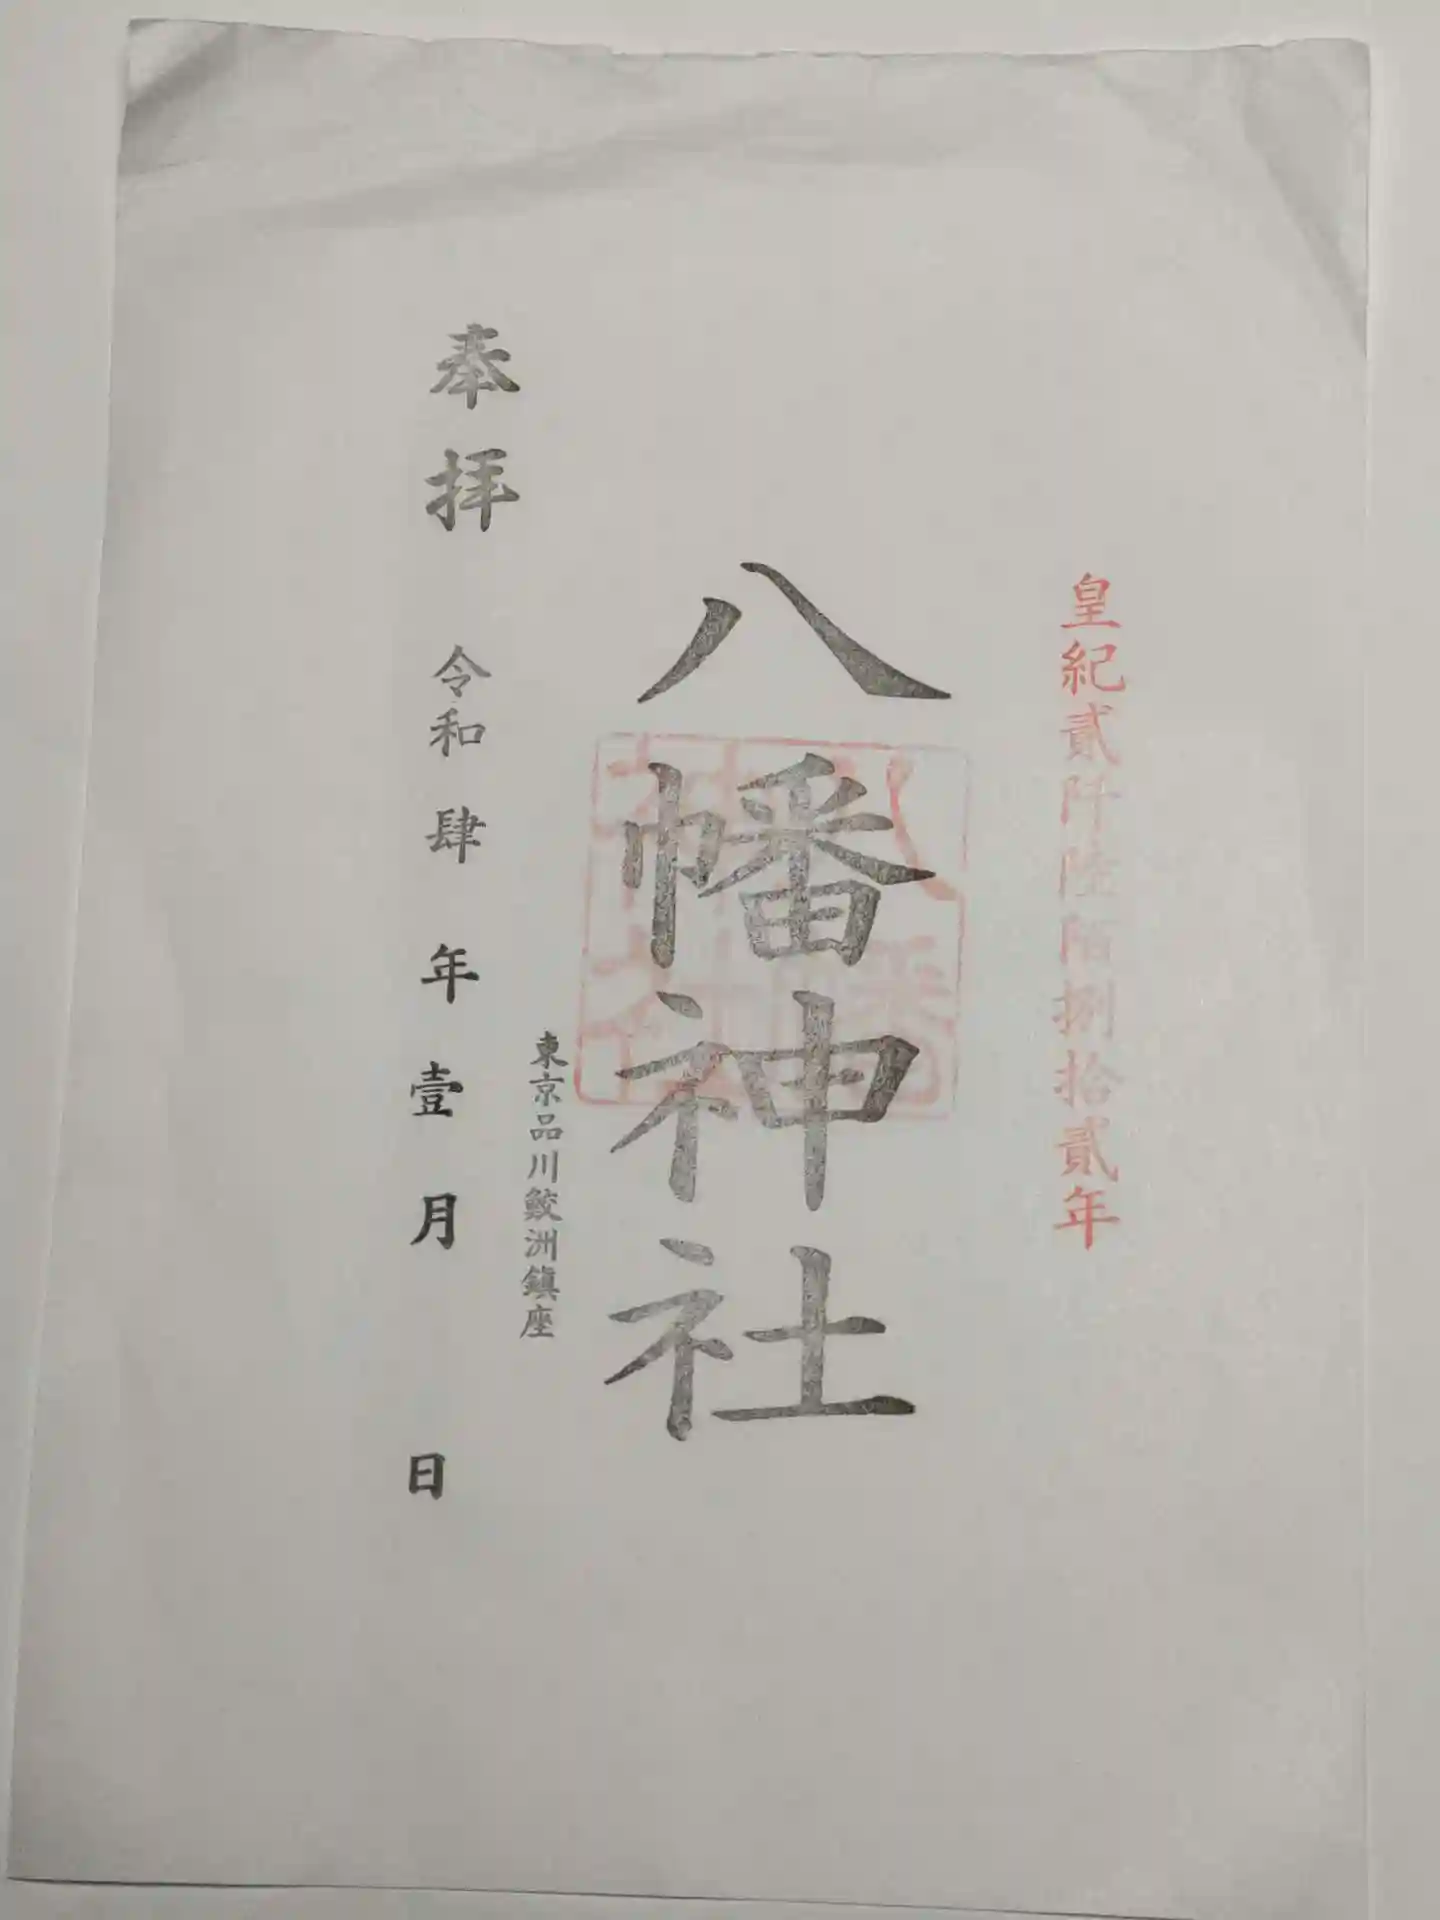 皇紀貳阡陸陌捌拾貳年
八幡神社
東京品川鮫洲鎭座
奉拝 令和肆年壹月 日